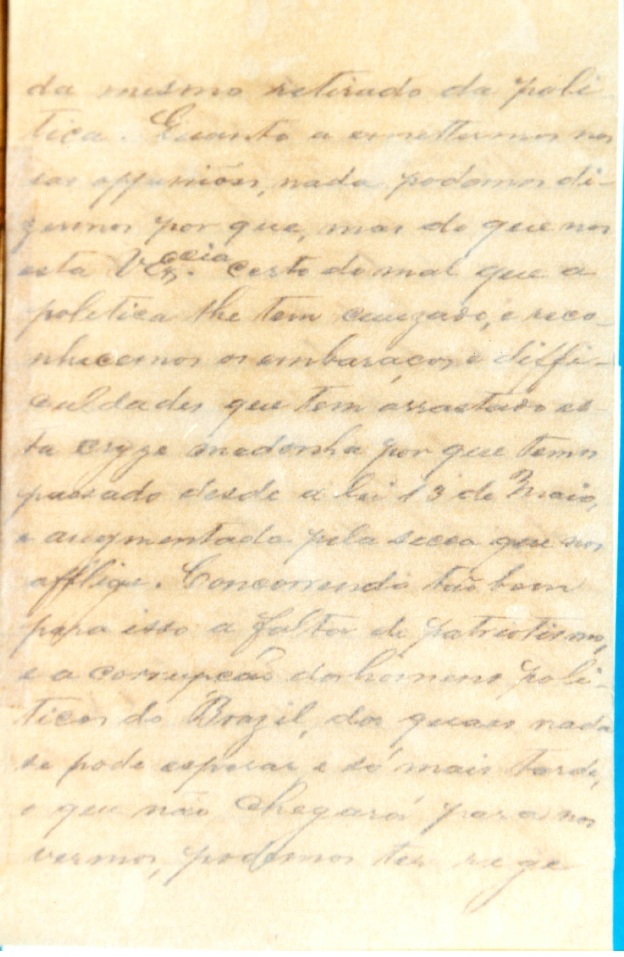 da mesmo retirado da poli-
tica. Quanto a emettermos nos
sas oppiniões, nada podemos di-
zermos por que, mas do que nos
esta V. Excia. certo do mal que a
politica lhe tem cauzado, e reco-
nhecemos os embaraços e diffi-
culdades que tem arrastado es-
ta cryze medonha por que temos
passado desde a lei 13 de Maio,
e augmentada pela secca que nos
afflige. Concorrendo tão bem
para isso a falta de patriotismo,
e a corrupção dos homens poli-
ticos do Brazil, dos quaes nada
se pode esperar e só mais tarde,
o que não chegará para nos
vermos, podemos ter rege